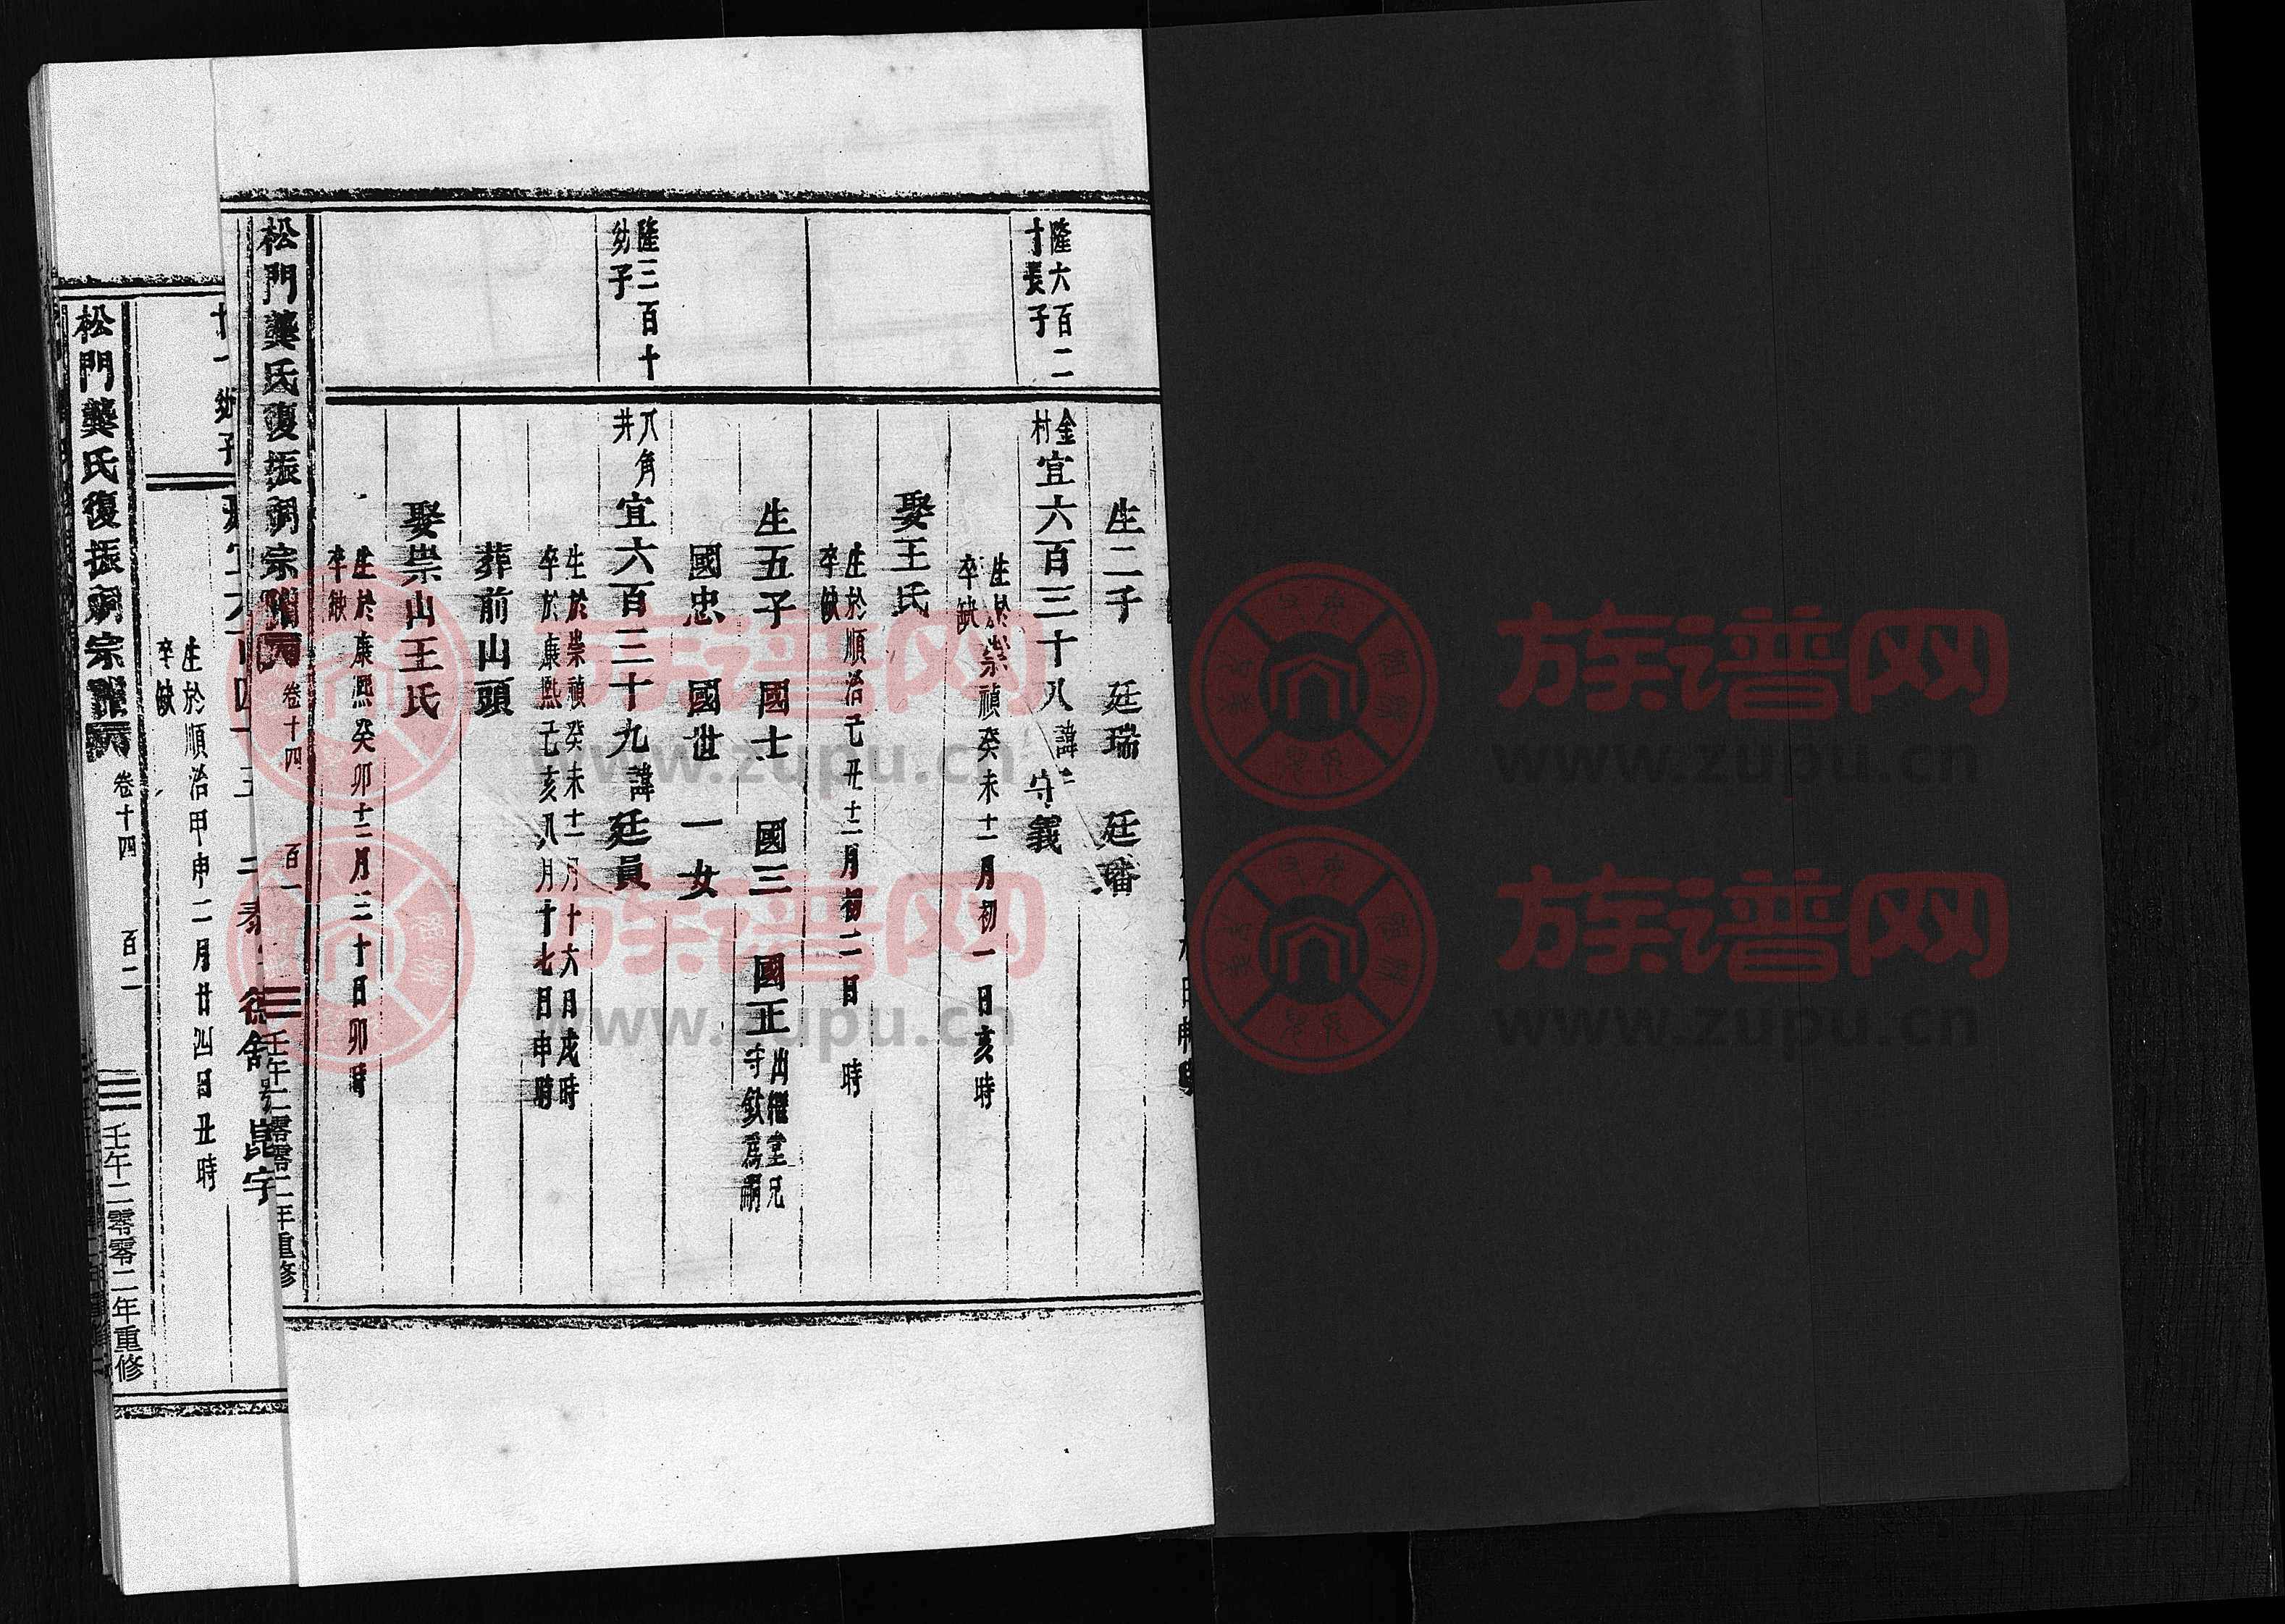 生二子 廷瑞 廷璠
隆六百二
十長子
金
村
宜六百三十八 諱 守義
生於崇禎癸未十一月初一日亥時
卒缺
娶王氏
生於順治己丑十二月初二日 時
卒缺
生五子 國士 國三 國正
出繼堂兄
守欽爲嗣
國忠 國世 一女
隆三百十
幼子
八角
井
宜六百三十九 諱 廷員
生於崇禎癸未十二月十六日戌時
卒於康熙己亥八月十七日申時
葬前山頭
娶崇山王氏
生於康熙癸卯十二月三十日卯時
卒缺
松門龔氏復振祠宗譜
卷十四
百一
壬午二零零二年重修
幼子
號 昆宇
生於順治甲申二月廿四日丑時
卒缺
松門龔氏復振祠宗譜
卷十四
百二
壬午二零零二年重修
族谱网
www.zupu.cn
族谱网
www.zupu.cn
族谱网
www.zupu.cn
族谱网
www.zupu.cn